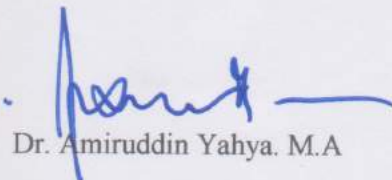 Dr. Amiruddin Yahya. M.A